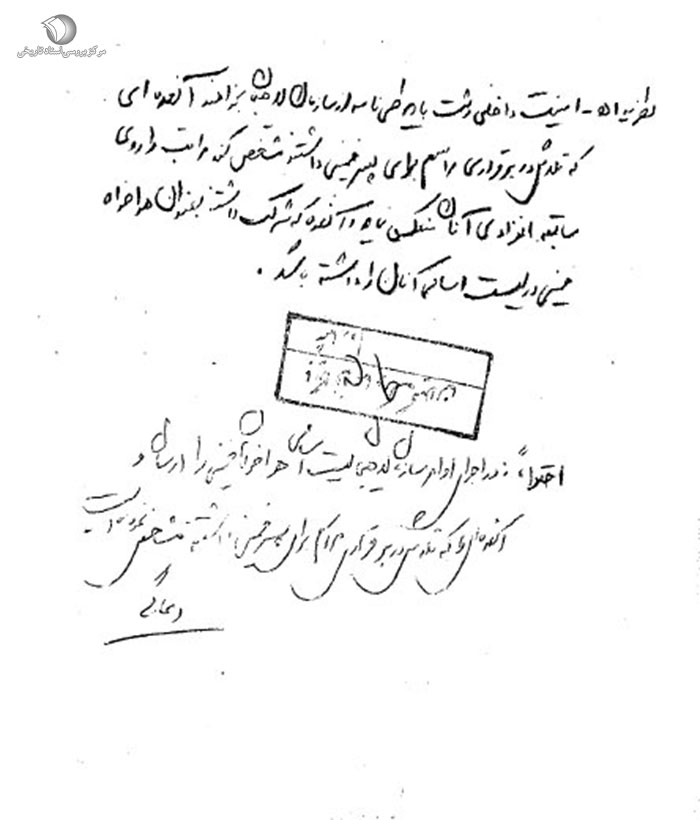 مرکز بررسی اسناد تاریخی
نظریه - امنیت داخلی رشت باید طی نامه از سازمان لاهیجان بخواهند آنعده ای
که تلاش در برقراری مراسم برای پسر خمینی داشتند مشخص کند مراتب را روی
سابقه انفرادی آنان منعکس نماید و آنعده که شرکت داشتند بعنوان هواخواه
خمینی در لیست اسامی آنان را داشته باشد.
احتراماً، در اجرای اوامر سازمان لاهیجان لیست اسامی هواخواهان خمینی را ارسال و
آنعده ای را که تلاش در برقراری مراسم برای پسر خمینی داشته مشخص نموده است